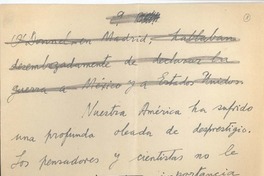 9
O'Donnel en Madrid, hablaban
desembozadamente de declarar la
guerra a México y a Estados Unidos
Nuestra América ha sufrido
una profunda oleada de desprestigio.
Los pensadores y cientistas no le
importancia